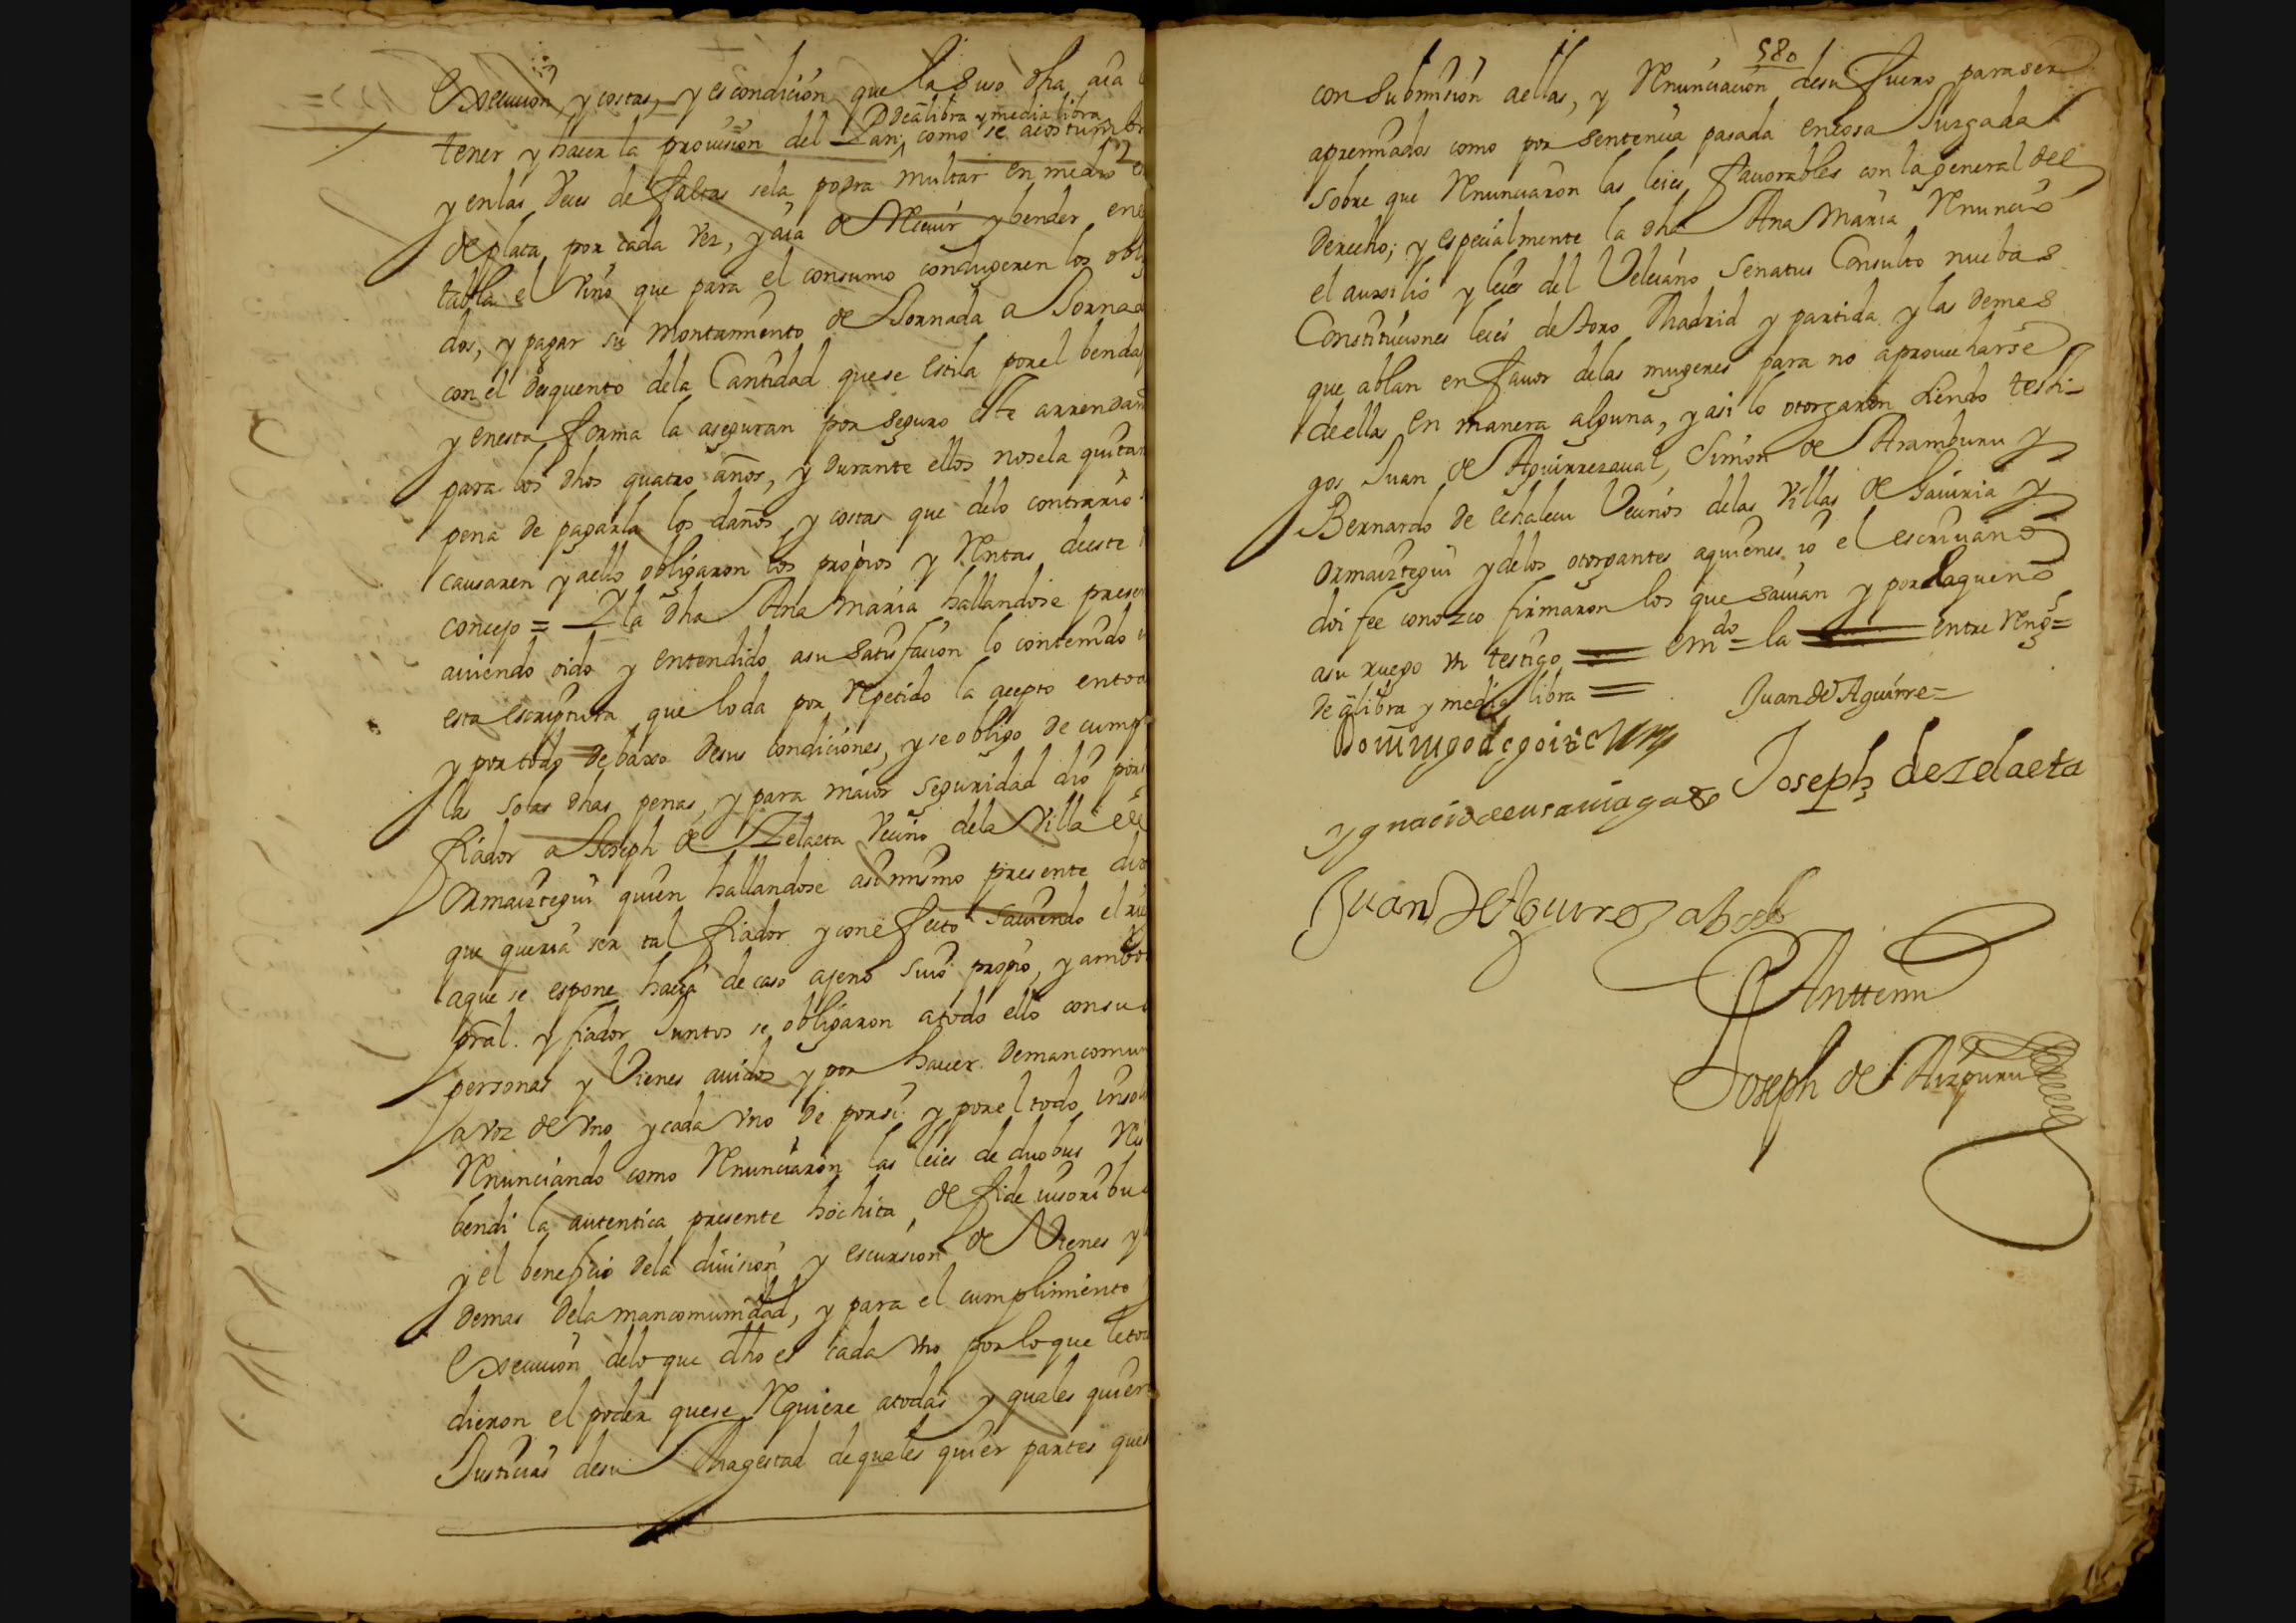 execucion, y costas, y es condicion que la suso dha aia
de a libra y media libra
tener y hacer la provision del Pan, como se acostumbr
y en las veces de faltas se la podra multar en medio
de plata por cada vez, y aia de recivir y bender en
tabla el vino que para el consumo condugeren los obli
dos, y pagar su montamiento de Jornada a Jornad
con el desquento de la Cantidad que se estila por el benda
y en esta forma la aseguran por seguro este arrendam
para los dhos quatro años, y durante ellos no se la quitar
pena de pagarla los daños, y costas que de lo contrario
causaren y a ello obligaron los propios y rentas de este
concejo = Y la dha Ana Maria hallandose presen
aviendo oido y entendido a su satisfacion lo contenido
esta escriptura que lo da por repetido la acepto en tod
y por todo debaxo de sus condiciones, y se obligo de cump
la so las dhas penas, y para maior seguridad dio por
fiador a Joseph de Zelaeta vecino de la Villa de
Ormaiztegui quien hallandose asimismo presente dixo
que queria ser tal fiador y con efecto saviendo el
a que se espone hacia de caso ajeno suio propio, y ambos
pral. y fiador Juntos se obligaron a todo ello con su
personas y Vienes avidos y por haver de mancomun
a voz de vno y cada vno de por si y por el todo insol
renunciando como renunciaron las leies de duobus re
bendi la autentica presente hochita, de fide iusoribus
y el beneficio de la division y escursion de Vienes y
demas de la mancomunidad, y para el cumplimiento
execucion de lo que dho es cada vno por lo que le to
dieron el poder que se requiere a todas y quales quier
Justicias de su Magestad de quales quier partes que
580
con submision a ellas, y renunciacion de su fuero para ser
apremiados como por sentencia pasada en cosa Juzgada
sobre que renunciaron las leies favorables con la general del
derecho; y especialmente la dha Ana Maria renuncio
el auxilio y leies del Veleiano Senatus Consulto nuebas
Constituciones leies de toro Madrid y partida y las demas
que ablan en favor de las mugeres para no aprovecharse
de ellas en manera alguna, y asi lo otorgaron siendo testi-
gos Juan de Aguirrezaual, Simon de Aramburu y
Bernardo de echalecu Vecinos de las Villas de Gaviria y
Ormaiztegui y de los otorgantes a quienes io el escrivano
doi fee conozco firmaron los que savian y por la que no
a su ruego vn testigo = emdo = la = entre reng.s =
de a libra y media libra =
Juan de Aguirre =
Domingo de goiz
Joseph de Zelaeta
ygnacio de
Juan de Aguirrezabal
Ante mi
Joseph de Aizpuru